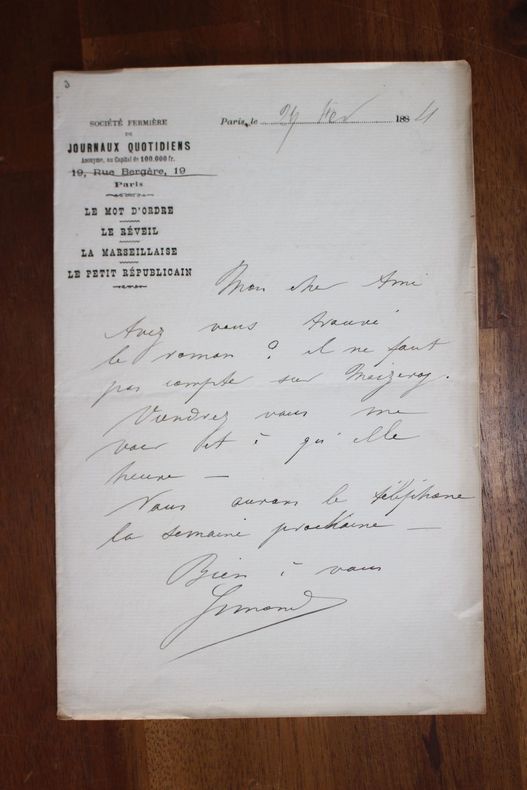 SOCIÉTÉ FERMIÈRE
DE
JOURNAUX QUOTIDIENS
Anonyme, au Capital de 100.000 fr.
19, Rue Bergère, 19
Paris
LE MOT D'ORDRE
LE RÉVEIL
LA MARSEILLAISE
LE PETIT RÉPUBLICAIN
Paris, le 29 fev 1884
Mon cher Ami
Avez vous trouvé
le roman ? il ne faut
pas compter sur Maizeroy.
Viendrez vous me
voir et à qu'elle
heure —
Nous aurons le téléphone
la semaine prochaine —
Bien à vous